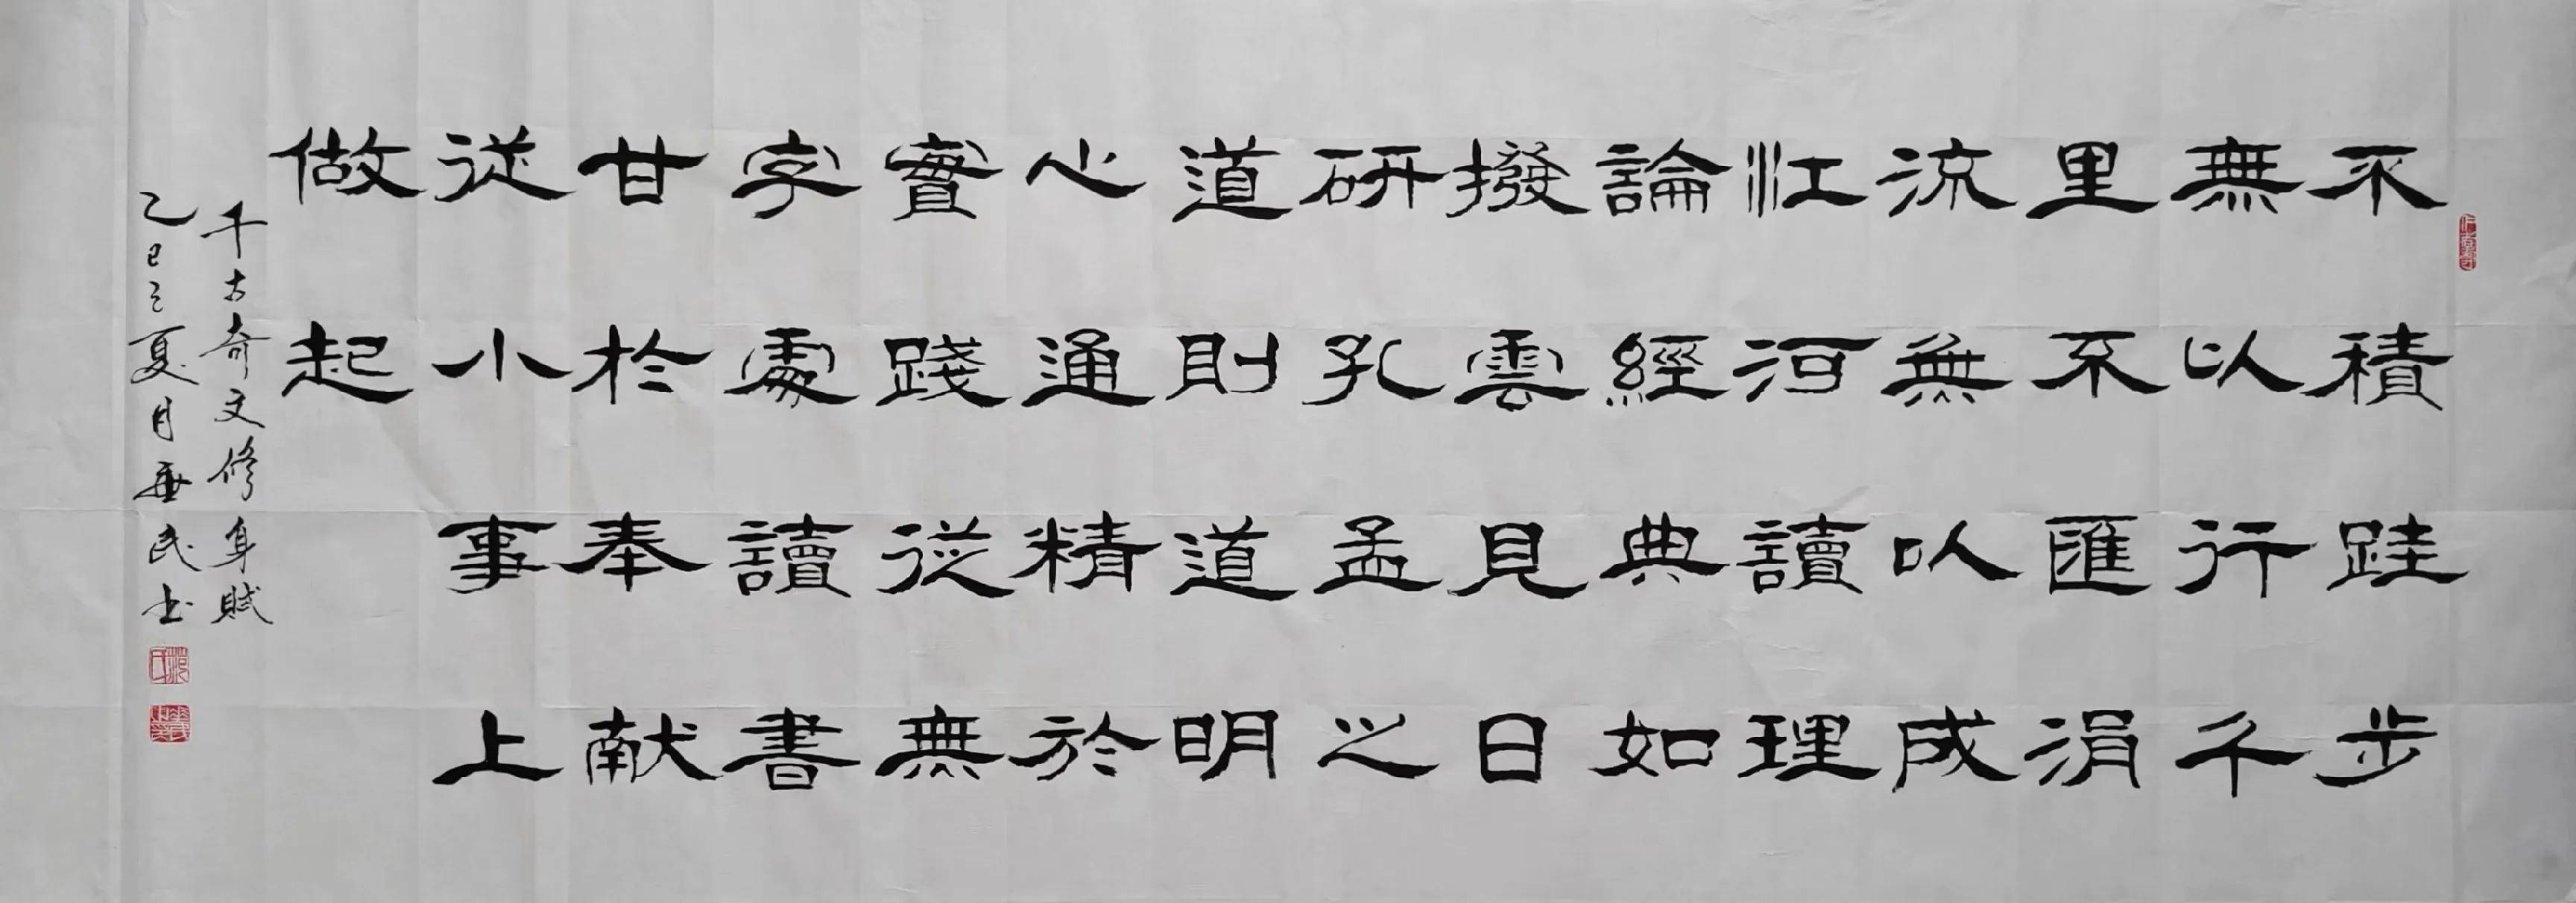 不積跬步
無以行千
里不匯涓
流無以成
江河讀理
論經典如
撥雲見日
研孔孟之
道則道明
心通精於
實踐從無
字處讀書
甘於奉献
從小事上
做起
千古奇文修身賦
乙巳之夏月垂民书